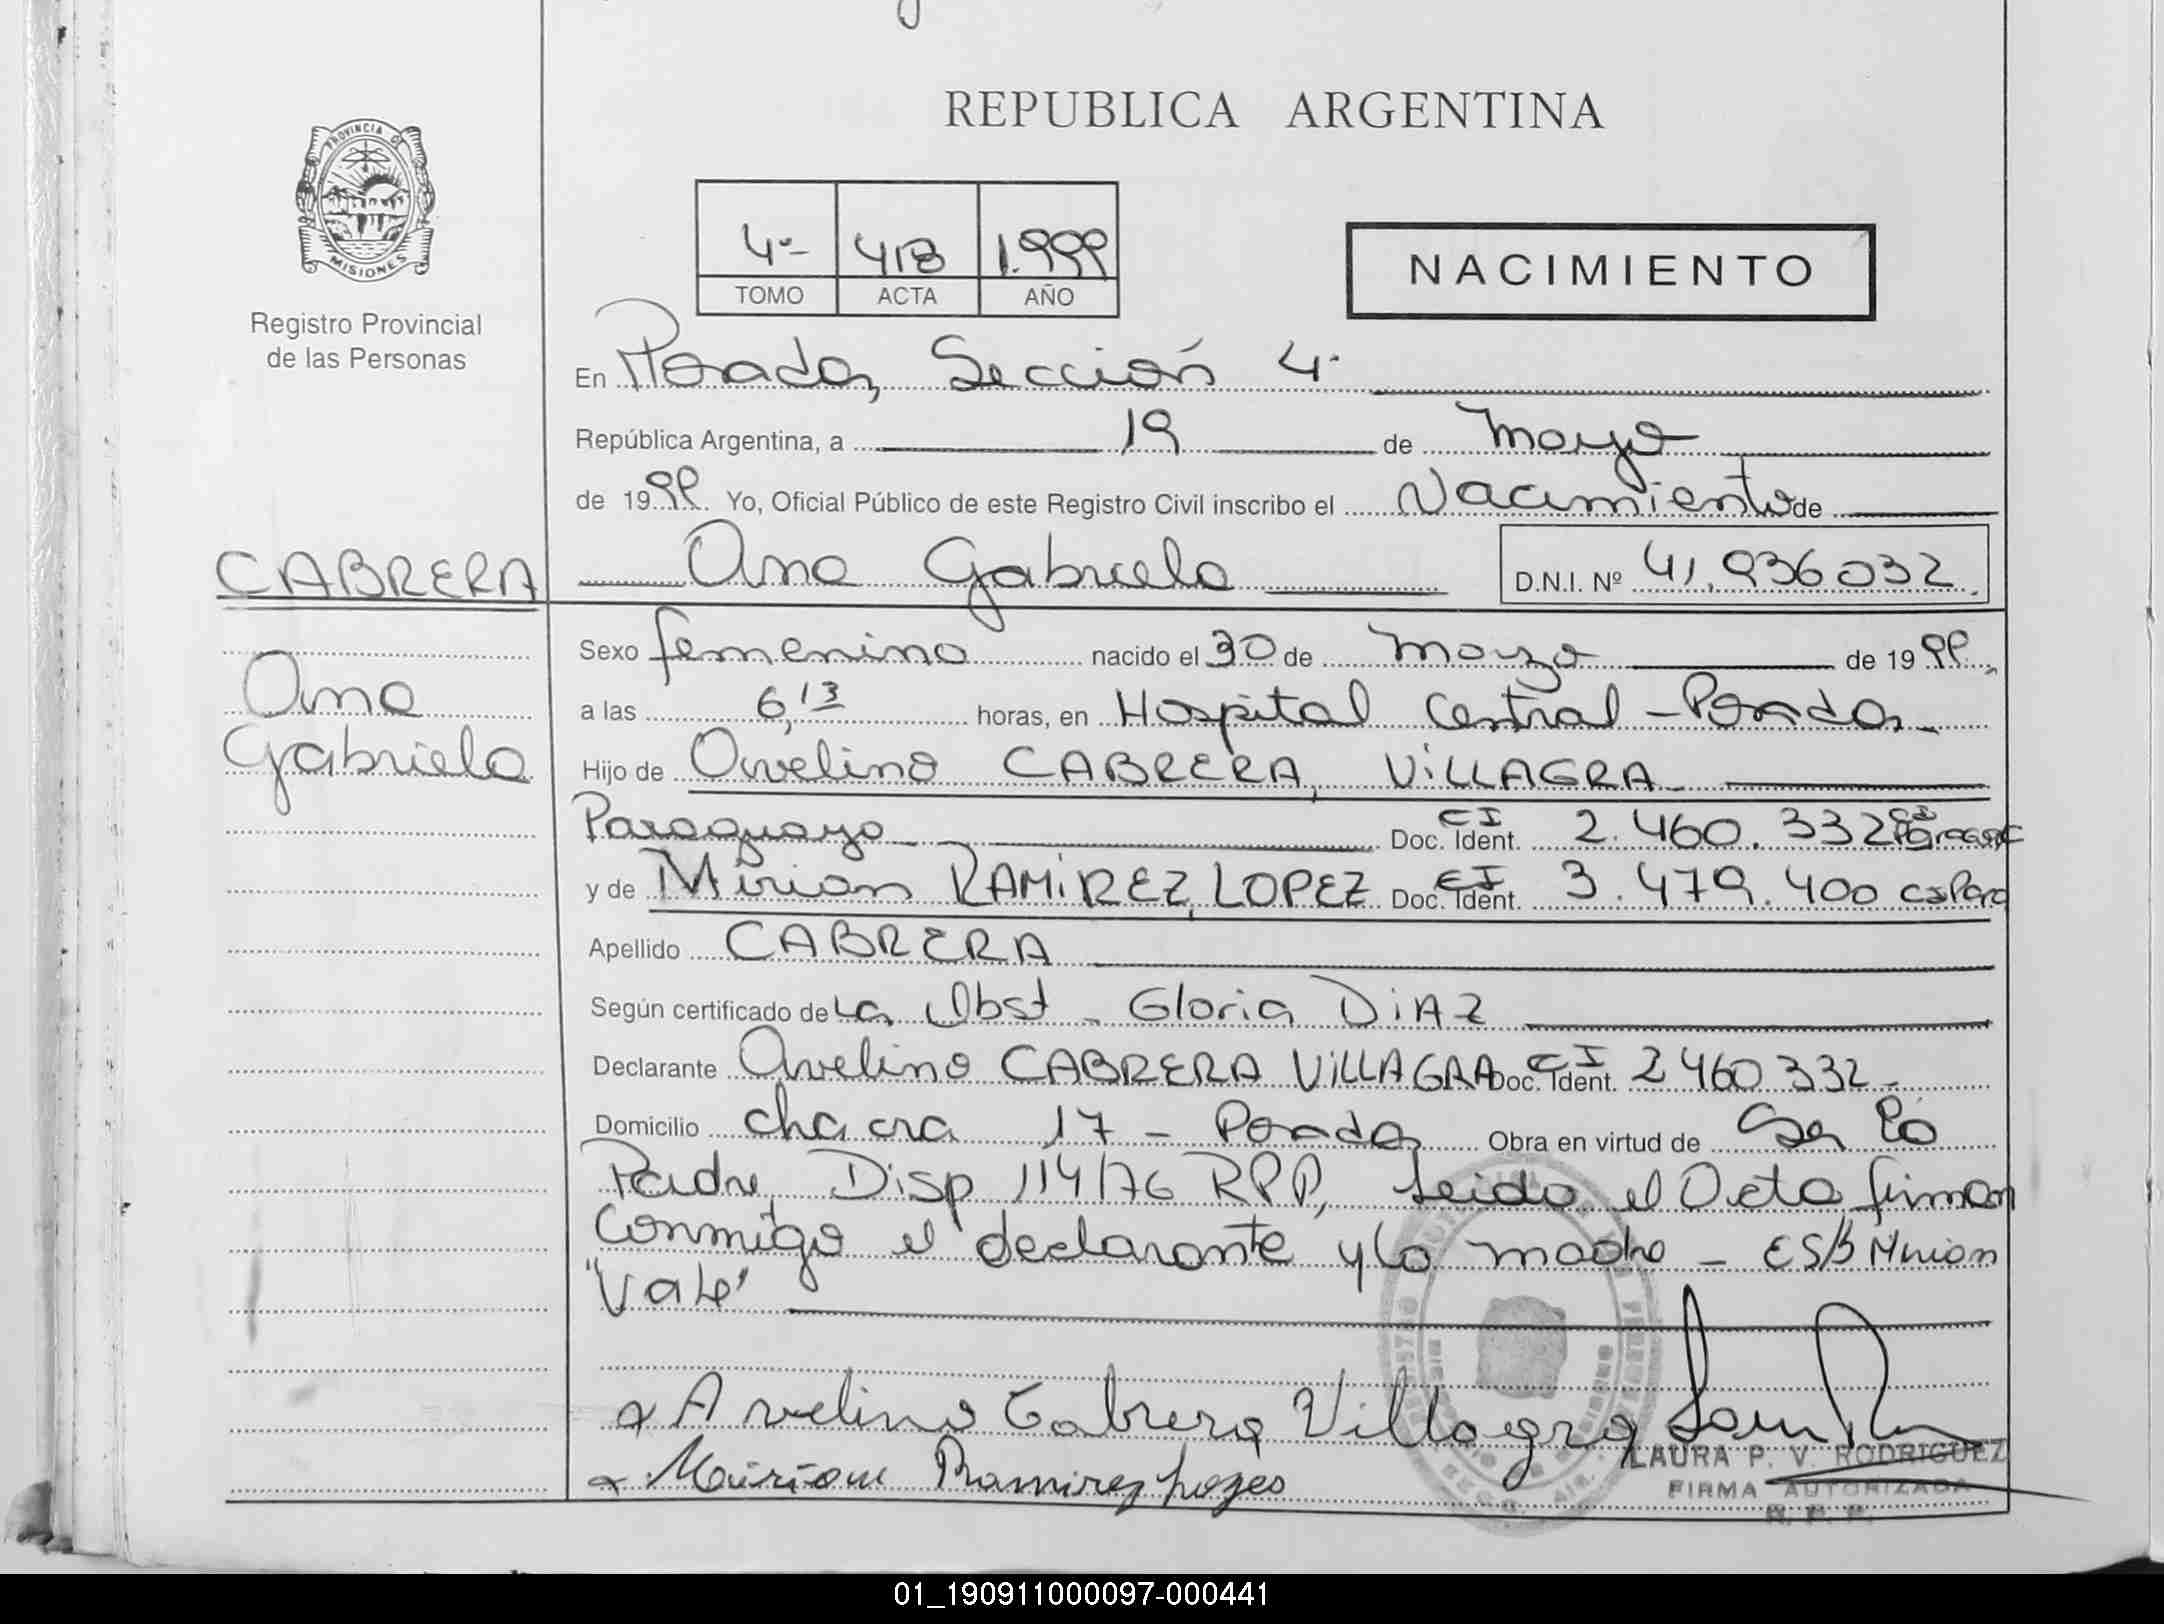 REPUBLICA ARGENTINA
PROVINCIA DE
MISIONES
Registro Provincial
de las Personas
4º- 418 1.999
TOMO ACTA AÑO
NACIMIENTO
En Posadas, Sección 4º
República Argentina, a 19 de mayo
de 1999. Yo, Oficial Público de este Registro Civil inscribo el Nacimiento de
CABRERA
Ana Gabriela D.N.I. Nº 41.936032.
Ana
Gabriela
Sexo femenino nacido el 30 de marzo de 1999.
a las 6,13 horas, en Hospital Central - Posadas
Hijo de Avelino CABRERA, VILLAGRA
Paraguayo Doc. Ident. CI 2.460.332
y de Mirian RAMIREZ, LOPEZ Doc. Ident. CI 3.479.400
Apellido CABRERA
Según certificado de La Obst - Gloria DIAZ
Declarante Avelino CABRERA VILLAGRA Doc. Ident. CI 2460332
Domicilio chacra 17 - Posadas Obra en virtud de Ser
Padre, Disp 114/76 RPP, Leida el Acta firman
conmigo el declarante y la madre - ES/B Mirian
"Vale"
Avelino Cabrera Villagra
Miriam Ramirez Lopes
LAURA P. V. RODRIGUEZ
FIRMA AUTORIZADA
R. P. P.
01_190911000097-000441